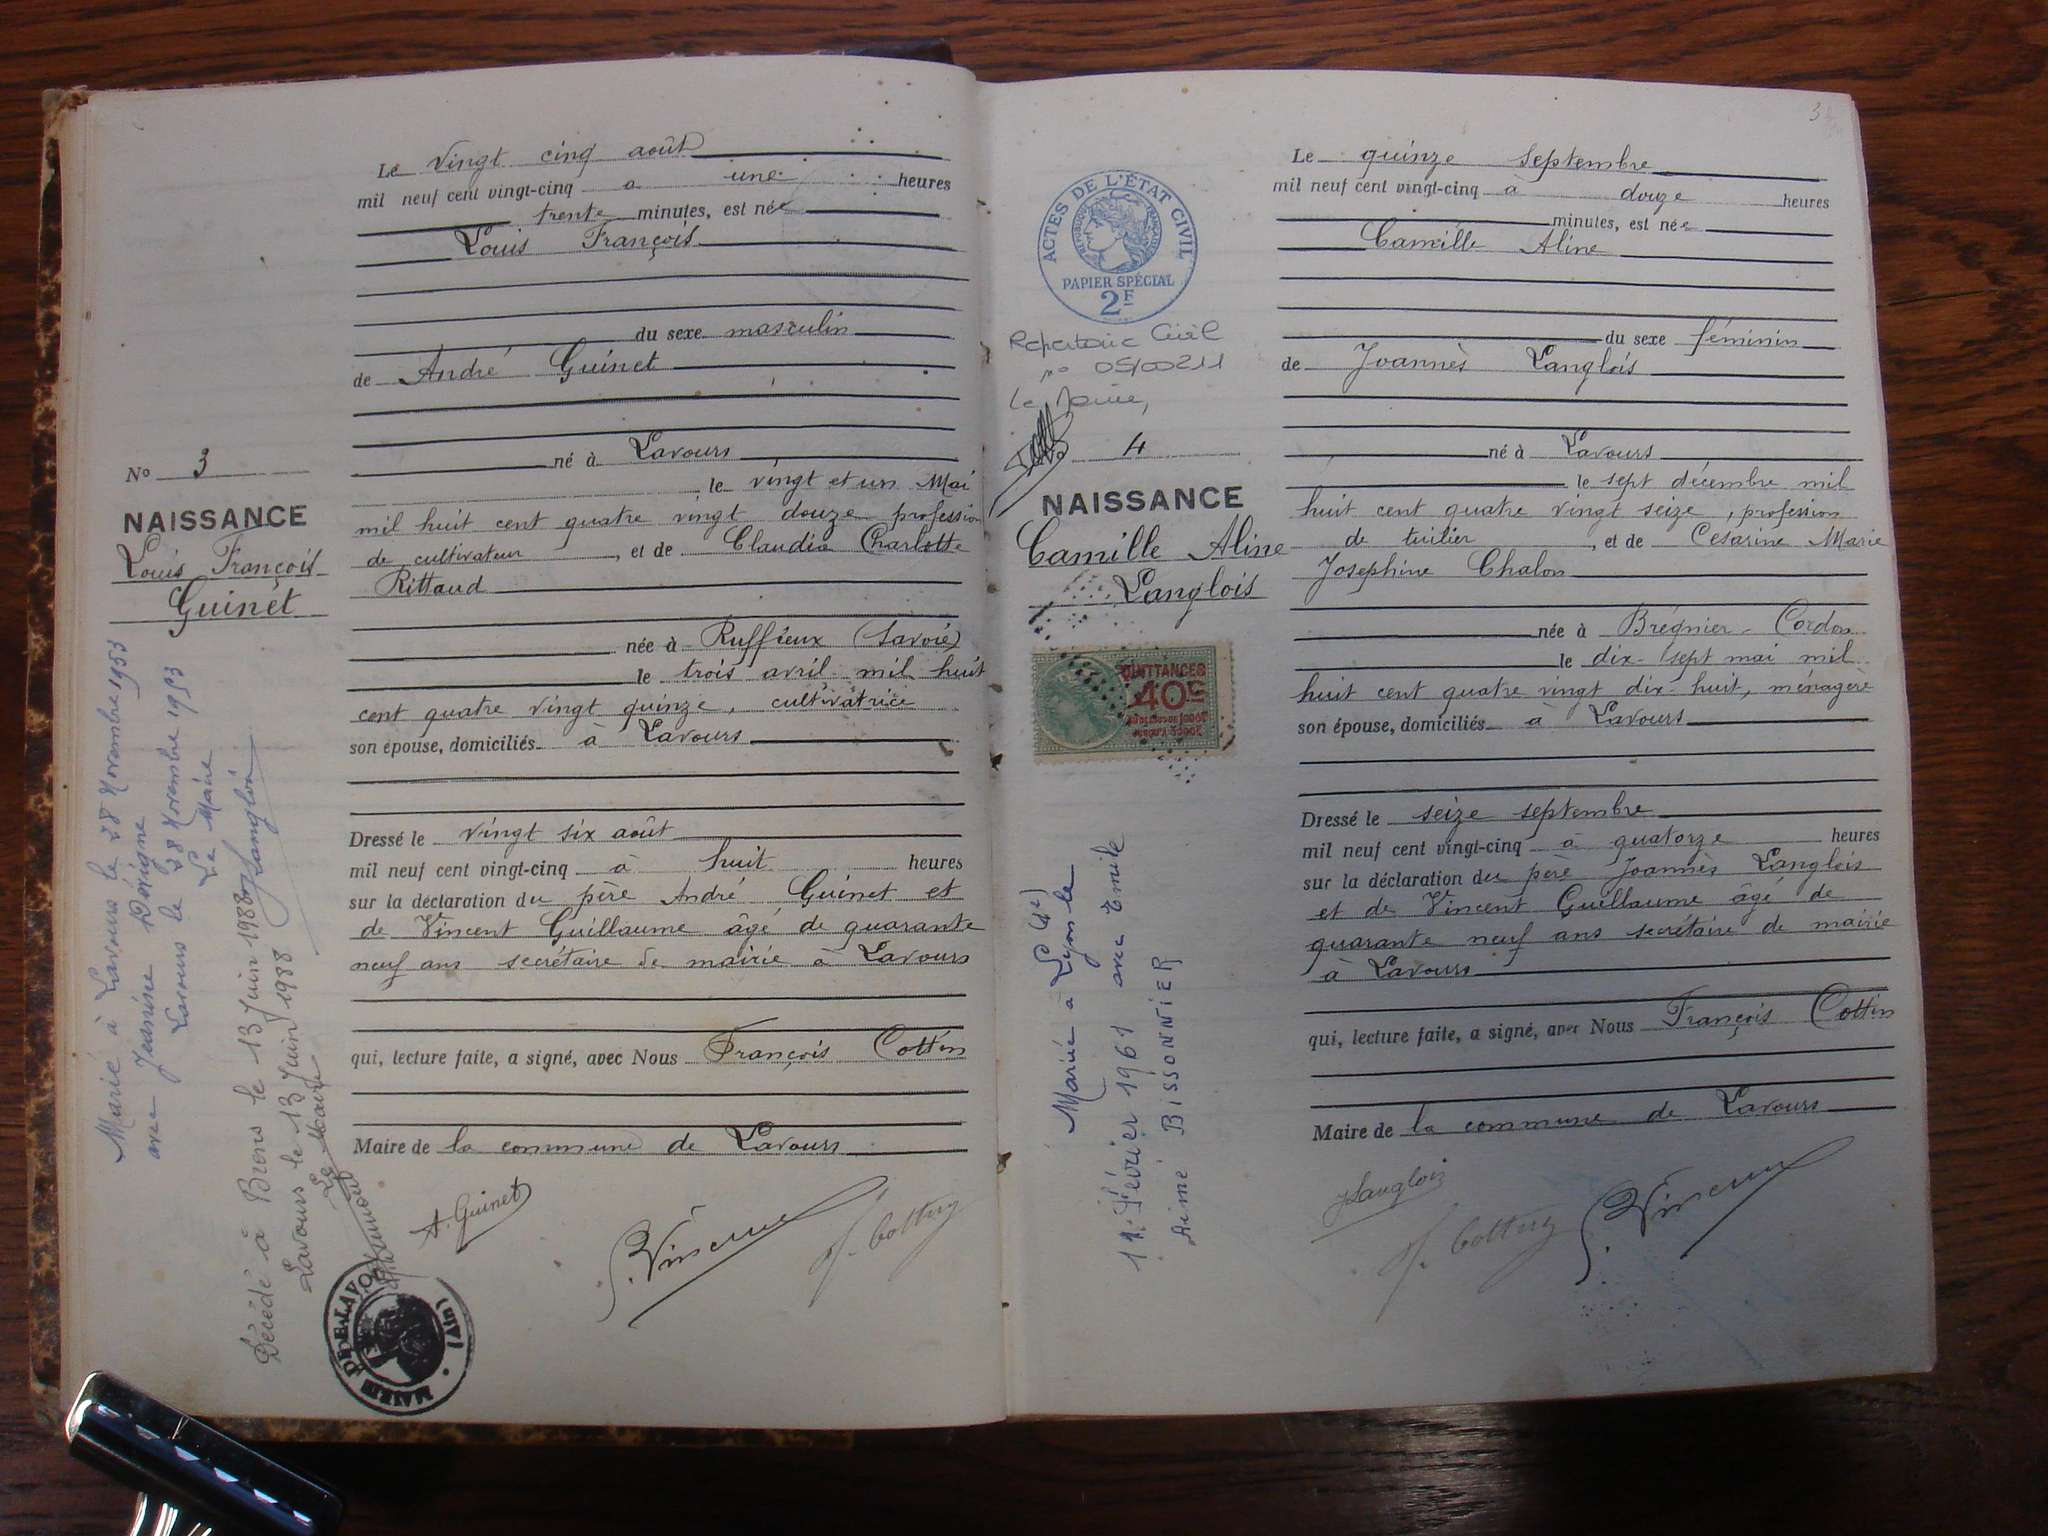 Le vingt cinq août
mil neuf cent vingt-cinq à une heures
trente minutes, est née
Louis François
du sexe masculin
de André Guinet
né à Lavours
le vingt et un Mai
mil huit cent quatre vingt douze profession
de cultivateur, et de Claudia Charlotte
Rittaud
née à Ruffieux (Savoie)
le trois avril mil huit
cent quatre vingt quinze, cultivatrice
son épouse, domiciliés à Lavours
Dressé le vingt six août
mil neuf cent vingt-cinq à huit heures
sur la déclaration du père André Guinet et
de Vincent Guillaume âgé de quarante
neuf ans secrétaire de mairie à Lavours
qui, lecture faite, a signé, avec Nous François Cottin
Maire de la commune de Lavours
A. Guinet
G. Vincent
F. Cottin
No 3
NAISSANCE
Louis François
Guinet
Marié à Lavours le 28 Novembre 1953
avec Jeannine
Lavours le 28 Novembre 1953
Le Maire
JLanglois
Décédé à Brens le 13 Juin 1988
Lavours le 13 Juin 1988
Le Maire
MAIRIE DE LAVOURS
(Ain)
3
ACTES DE L'ÉTAT CIVIL
RÉPUBLIQUE FRANÇAISE
PAPIER SPÉCIAL
2F
Repertoire Civil
no 05/00211
Le Maire,
4
NAISSANCE
Camille Aline
Langlois
QUITTANCES
40c
Mariée à Lyon (4e) le
11 Février 1961 avec Emile
Aimé BISSONNIER
Le quinze septembre
mil neuf cent vingt-cinq à douze heures
minutes, est née
Camille Aline
du sexe féminin
de Joannès Langlois
né à Lavours
le sept décembre mil
huit cent quatre vingt seize, profession
de tuilier, et de Césarine Marie
Joséphine Chalon
née à Brégnier-Cordon
le dix-sept mai mil
huit cent quatre vingt dix-huit, ménagère
son épouse, domiciliés à Lavours
Dressé le seize septembre
mil neuf cent vingt-cinq à quatorze heures
sur la déclaration du père Joannès Langlois
et de Vincent Guillaume âgé de
quarante neuf ans secrétaire de mairie
à Lavours
qui, lecture faite, a signé, avec Nous François Cottin
Maire de la commune de Lavours
JLanglois
F. Cottin
G. Vincent